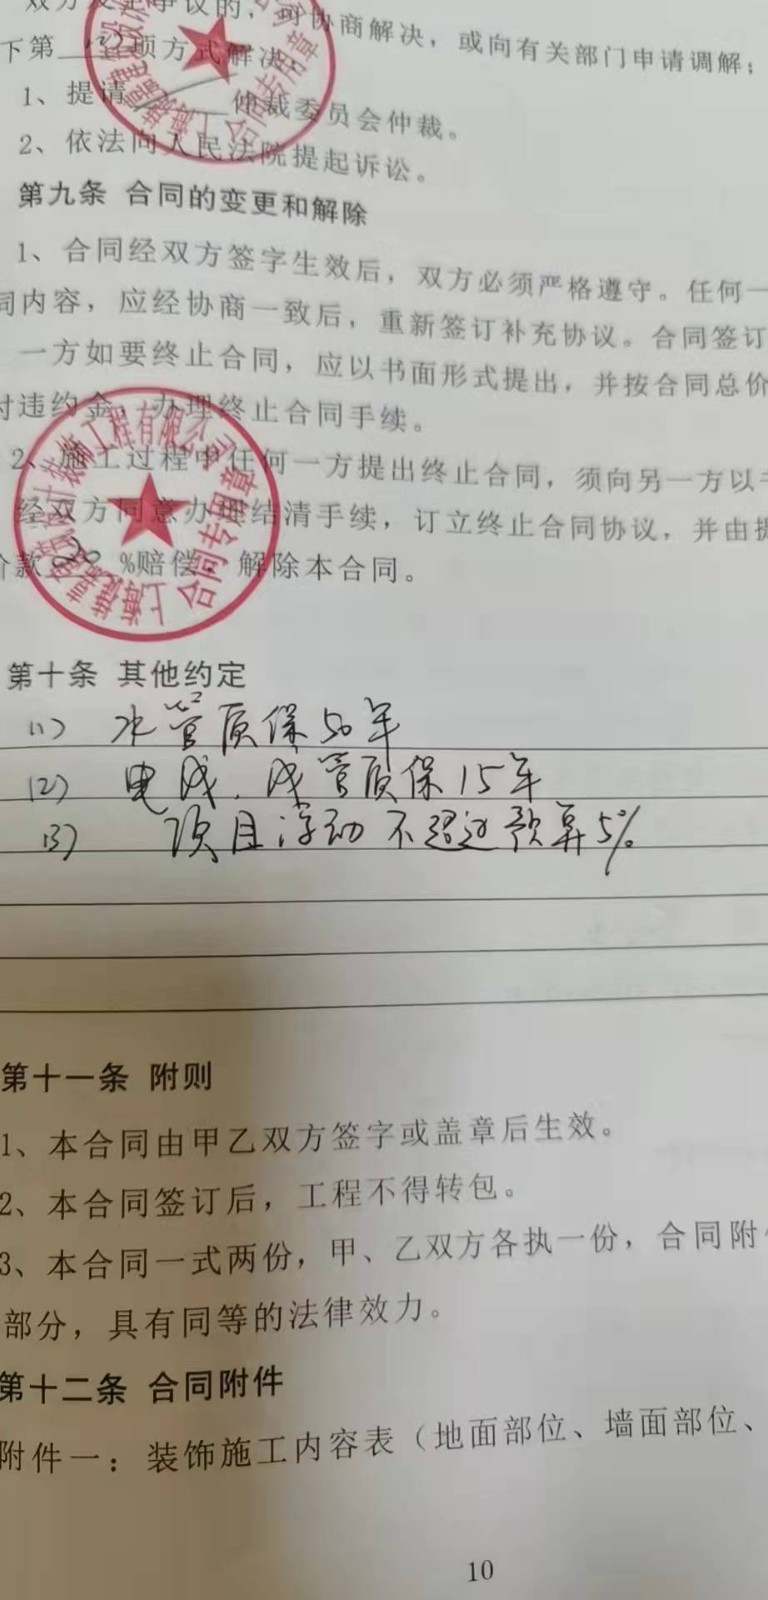 双方发生争议的，可协商解决，或向有关部门申请调解；
下第 项方式解决：
1、提请 仲裁委员会仲裁。
2、依法向人民法院提起诉讼。
第九条 合同的变更和解除
1、合同经双方签字生效后，双方必须严格遵守。任何一
同内容，应经协商一致后，重新签订补充协议。合同签订
一方如要终止合同，应以书面形式提出，并按合同总价
付违约金，办理终止合同手续。
2、施工过程中任何一方提出终止合同，须向另一方以书
经双方同意办理结清手续，订立终止合同协议，并由提
价款20%赔偿，解除本合同。
装饰工程有限公司
合同专用章
上海
第十条 其他约定
(1) 水管质保50年
(2) 电线、线管质保15年
(3) 项目浮动不超过预算5%
第十一条 附则
1、本合同由甲乙双方签字或盖章后生效。
2、本合同签订后，工程不得转包。
3、本合同一式两份，甲、乙双方各执一份，合同附件
部分，具有同等的法律效力。
第十二条 合同附件
附件一：装饰施工内容表（地面部位、墙面部位、
10